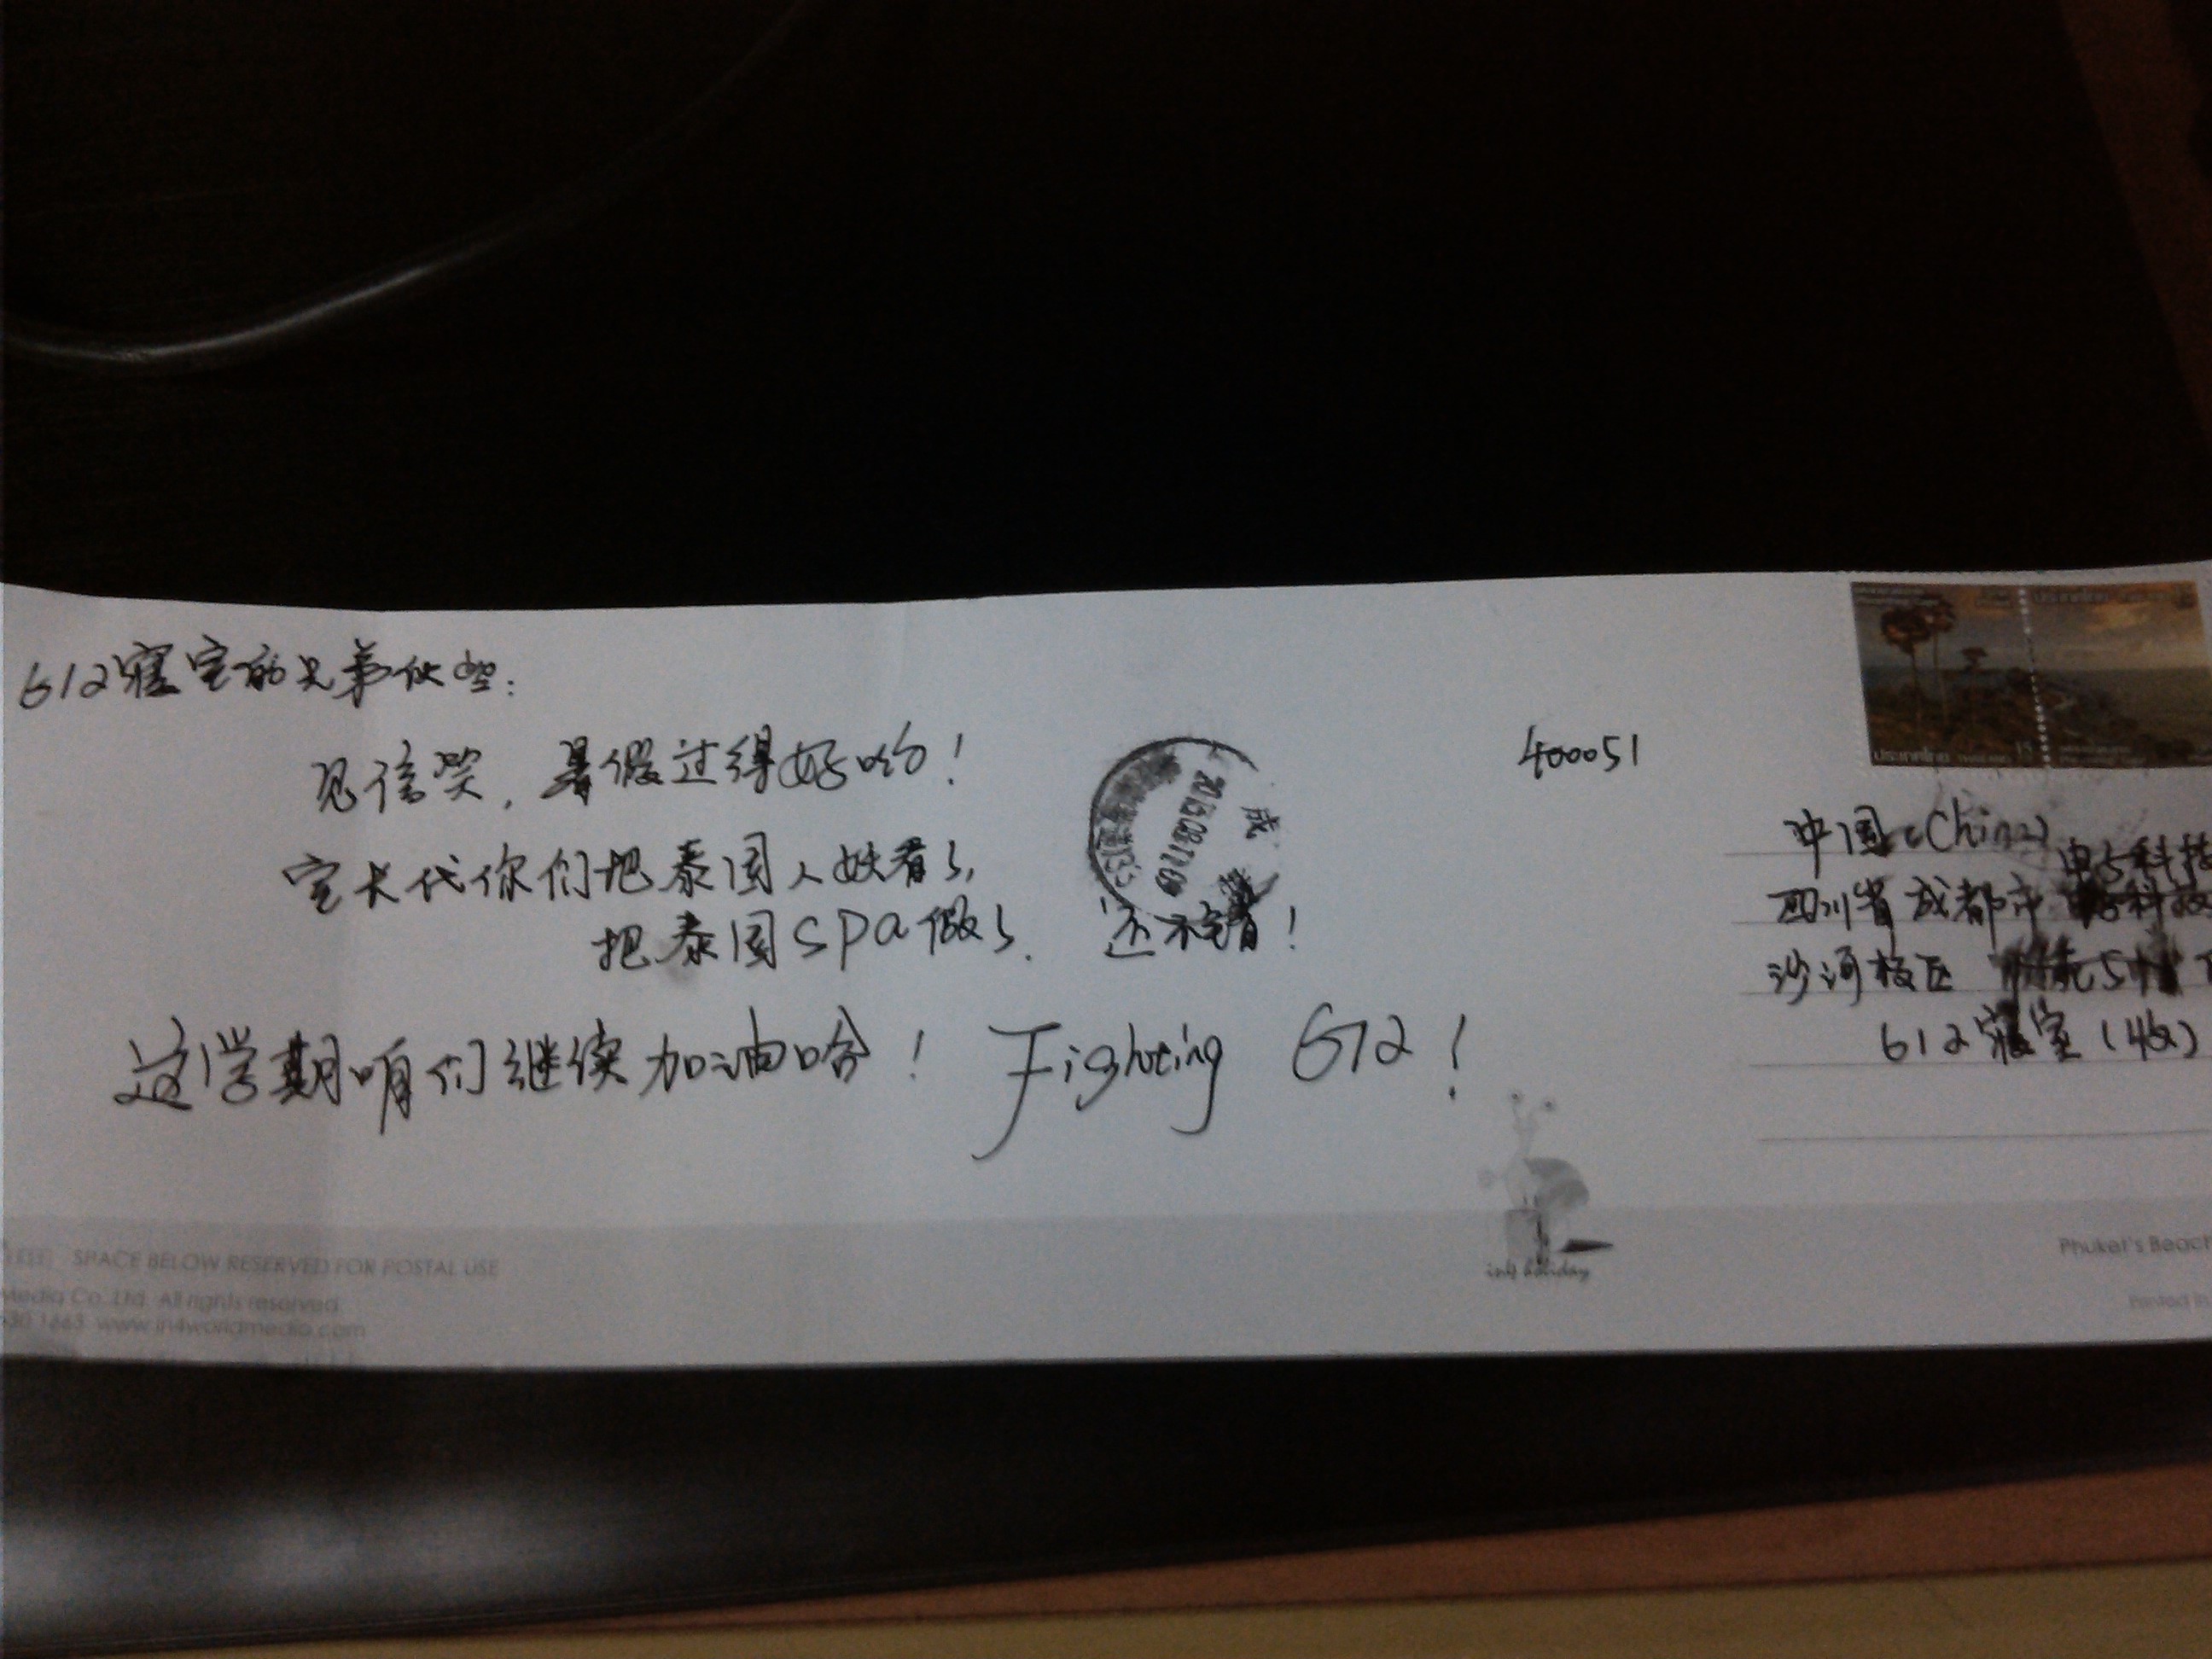 612寝室的兄弟伙些:
见信笑,暑假过得好哈!
室长代你们把泰国人妖看了,
把泰国spa做了. 还不错!
这学期咱们继续加油哈! Fighting 612!
400051
中国(China)
电子科技
四川省成都市
沙河校区
612寝室(收)
成
SPACE BELOW RESERVED FOR POSTAL USE
Media Co.,Ltd. All rights reserved
1663 www.in4worldmedia.com
Phuket's Beach
Printed in